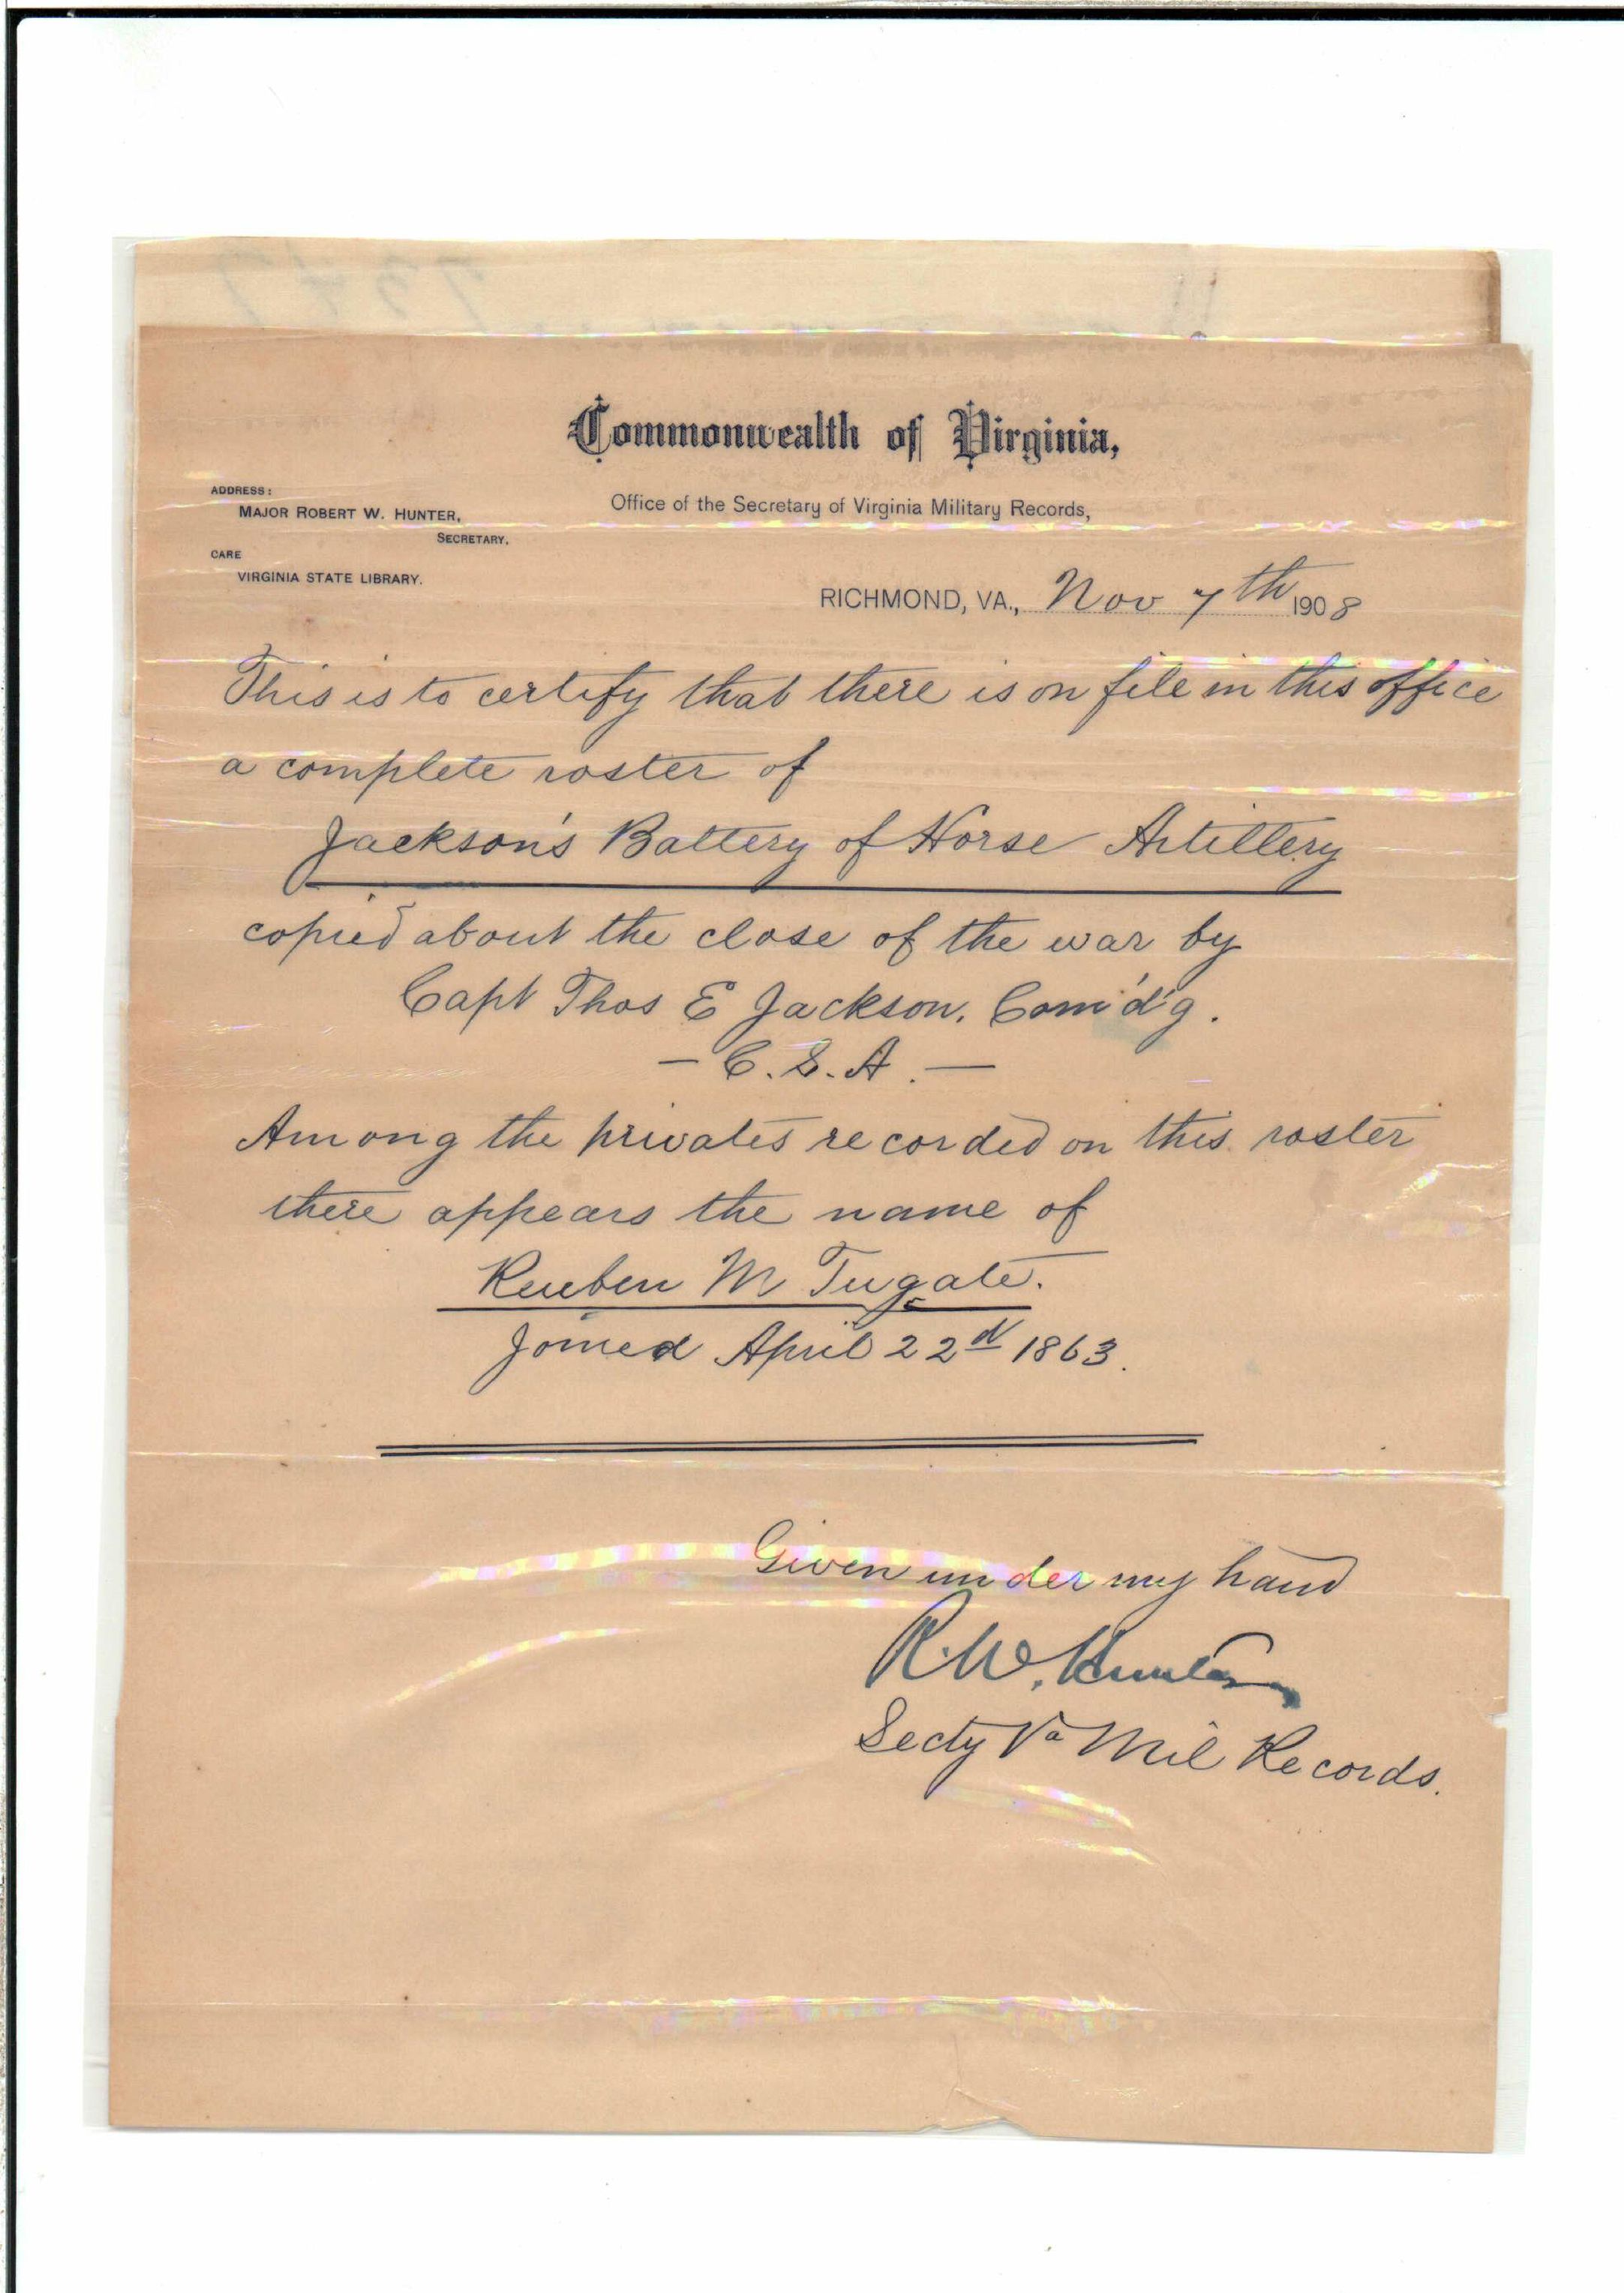 Commonwealth of Virginia,
ADDRESS:
MAJOR ROBERT W. HUNTER,
SECRETARY.
CARE
VIRGINIA STATE LIBRARY.
Office of the Secretary of Virginia Military Records,
RICHMOND, VA., Nov 7th 1908
This is to certify that there is on file in this office
a complete roster of
Jackson's Battery of Horse Artillery
copied about the close of the war by
Capt Thos E Jackson, Com'd'g.
— C. S. A. —
Among the privates recorded on this roster
there appears the name of
Reuben M Tugate.
Joined April 22d 1863.
Given under my hand
R. W. Hunter
Secty Va Mil Records.